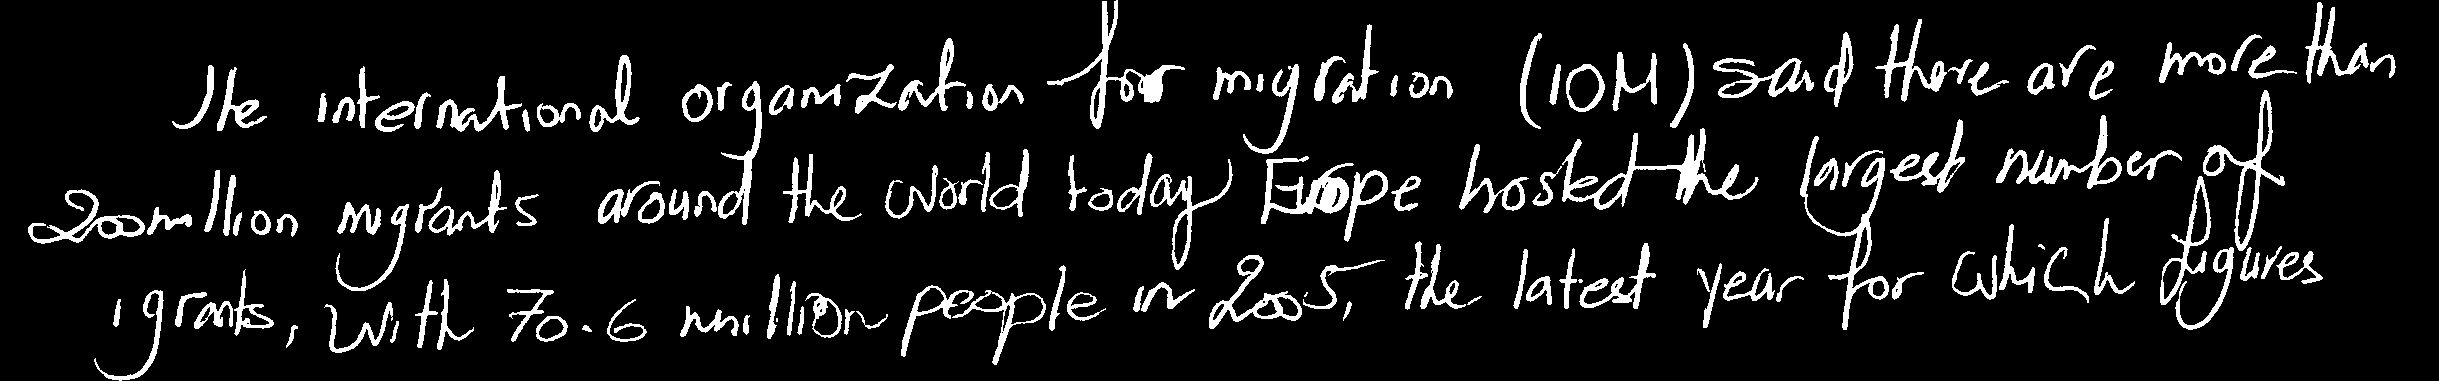 The international organization for migration (IOM) said there are more than
200 million migrants around the world today Europe hosted the largest number of
igrants, with 70.6 million people in 2005, the latest year for which figures